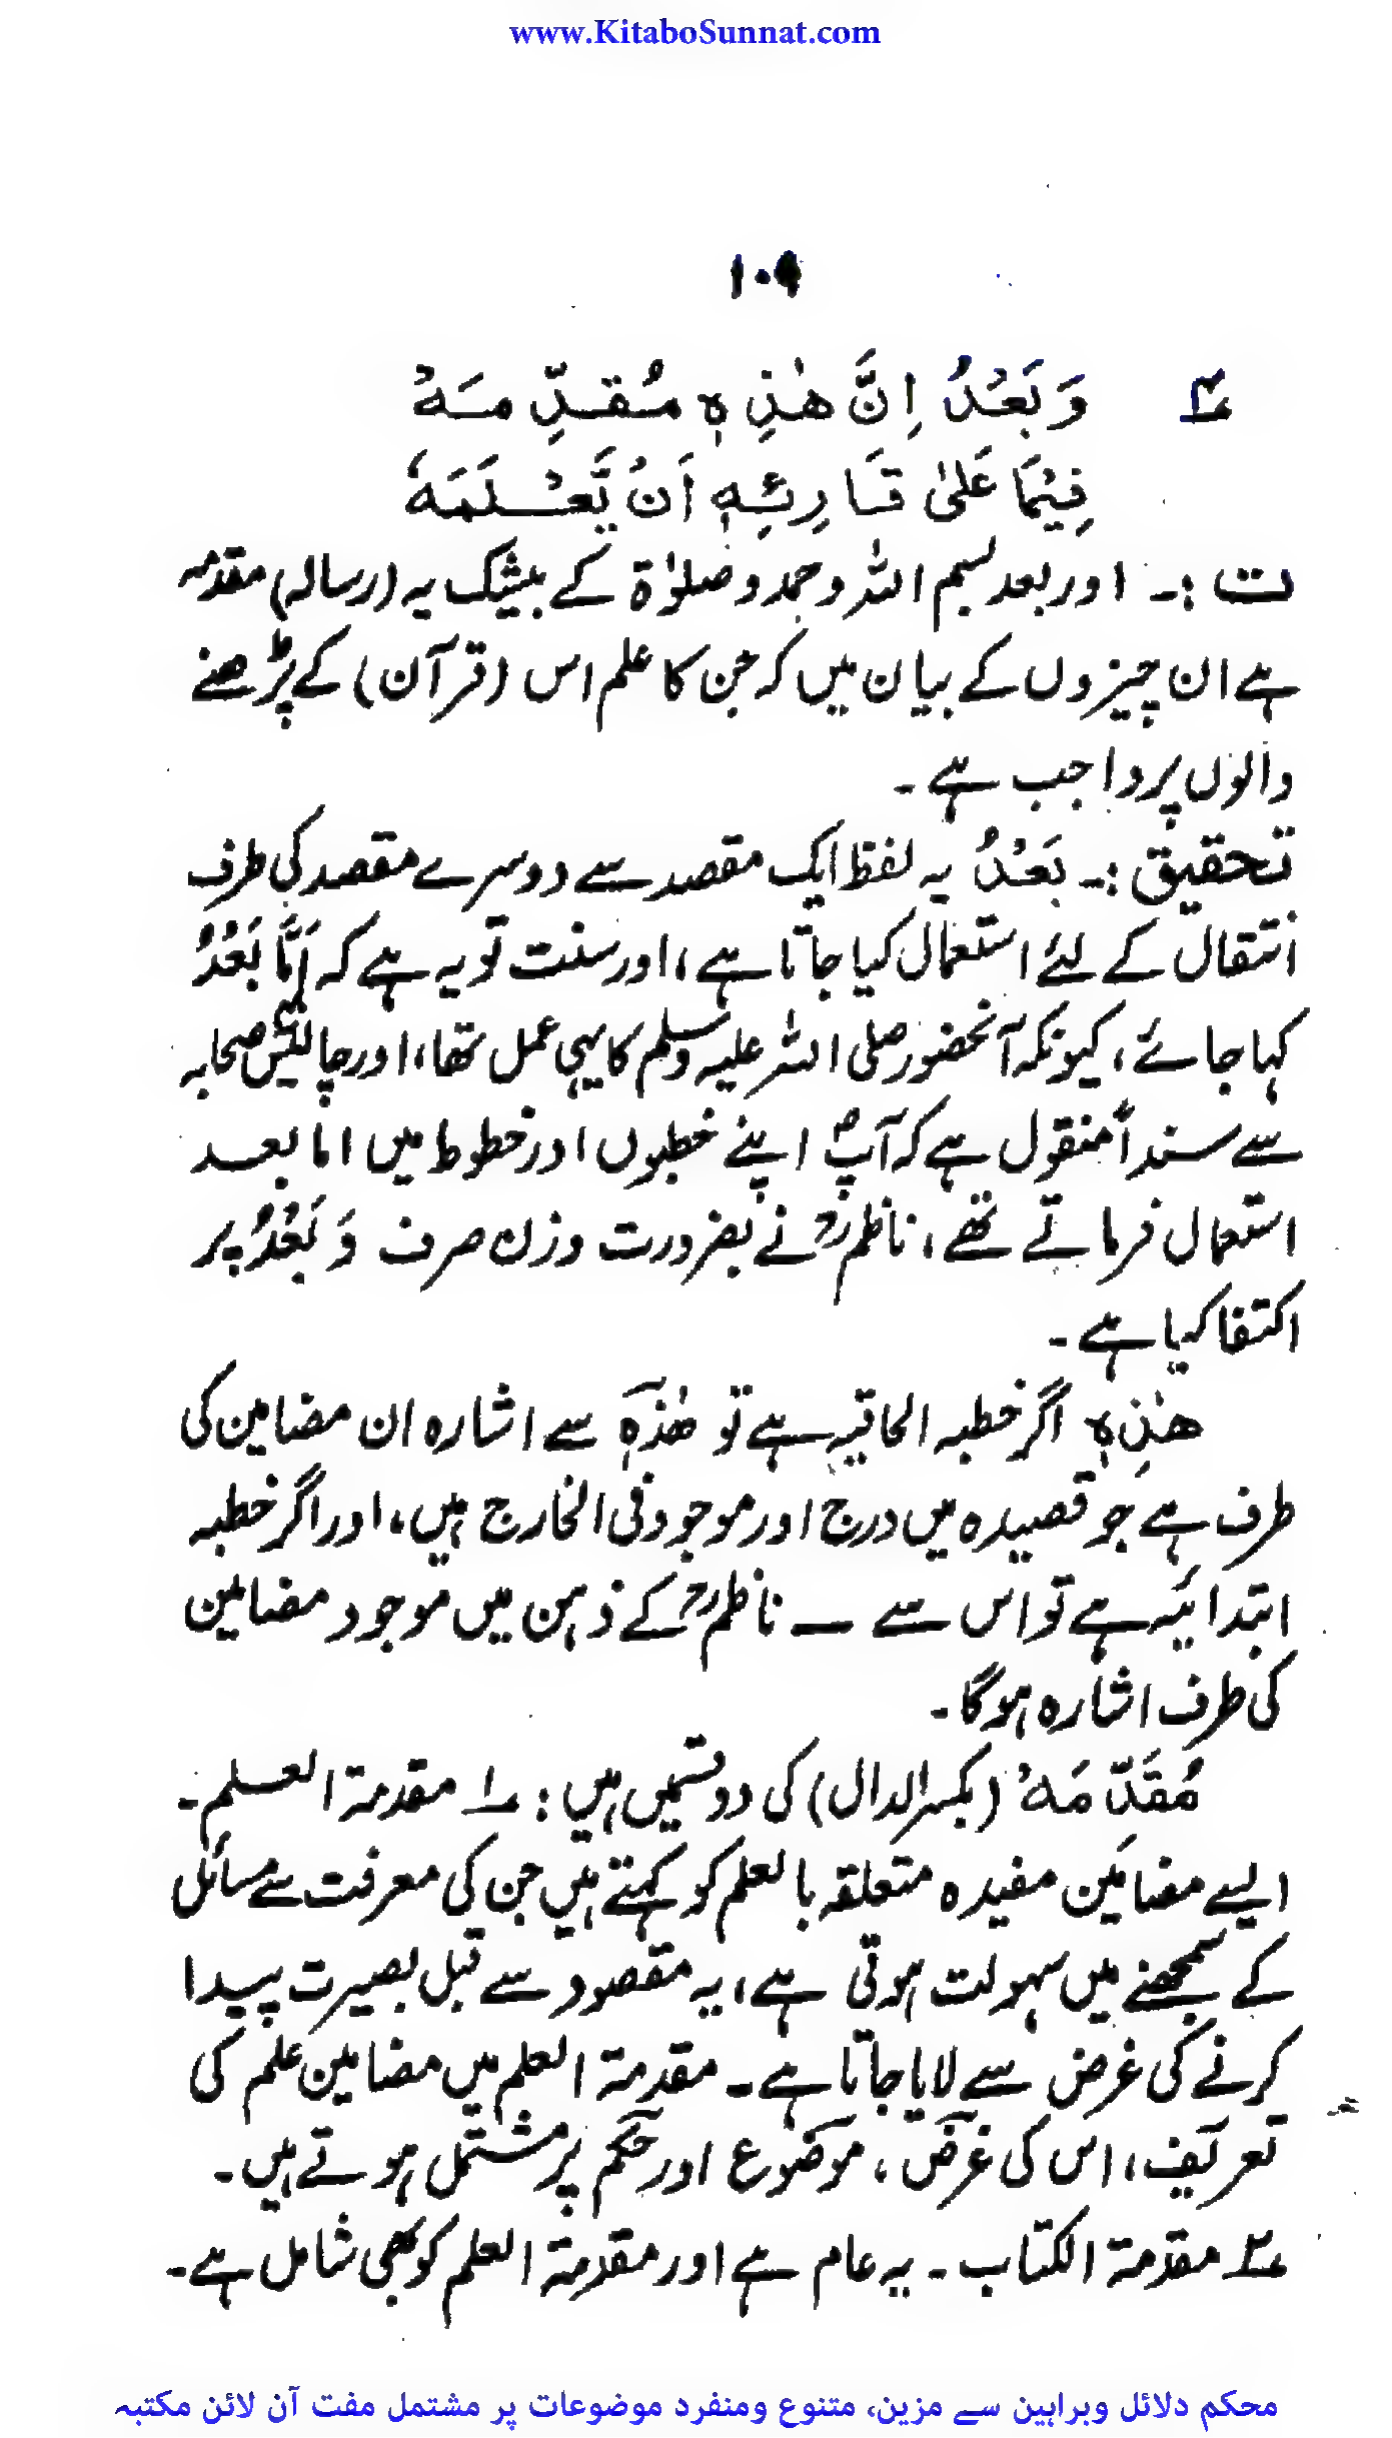 www.KitaboSunnat.com
۱۰۹
۴ وَبَعْدُ اِنَّ هٰذِهٖ مُقَدِّمَهْ
فِيْمَا عَلٰى قَارِئِهٖ اَنْ يَّعْلَمَهٗ
ت :۔ اور بعد بسم اللہ وحمد وصلوٰۃ کے بیشک یہ (رسالہ) مقدمہ
ہے ان چیزوں کے بیان میں کہ جن کا علم اس (قرآن) کے پڑھنے
والوں پر واجب ہے ۔
تحقیق :۔ بَعْدُ یہ لفظ ایک مقصد سے دوسرے مقصد کی طرف
انتقال کے لئے استعمال کیا جاتا ہے، اور سنت تو یہ ہے کہ اَمَّا بَعْدُ
کہا جائے، کیونکہ آنحضور صلی اللہ علیہ وسلم کا یہی عمل تھا، اور چالیس صحابہ
سے سنداً منقول ہے کہ آپؐ اپنے خطبوں اور خطوط میں اما بعد
استعمال فرماتے تھے، ناظمؒ نے بضرورت وزن صرف وَبَعْدُ پر
اکتفا کیا ہے ۔
هٰذِهٖ اگر خطبہ الحاقیہ ہے تو هٰذِهٖ سے اشارہ ان مضامین کی
طرف ہے جو قصیدہ میں درج اور موجود فی الخارج ہیں، اور اگر خطبہ
ابتدائیہ ہے تو اس سے — ناظمؒ کے ذہن میں موجود مضامین
کی طرف اشارہ ہوگا ۔
مُقَدِّمَهْ (بکسر الدال) کی دو قسمیں ہیں : ۱ مقدمۃ العلم ۔
ایسے مضامین مفیدہ متعلقہ بالعلم کو کہتے ہیں جن کی معرفت سے مسائل
کے سمجھنے میں سہولت ہوتی ہے، یہ مقصود سے قبل بصیرت پیدا
کرنے کی غرض سے لایا جاتا ہے ۔ مقدمۃ العلم میں مضامین علم کی
تعریف، اس کی غرض، موضوع اور حکم پر مشتمل ہوتے ہیں ۔
۲ مقدمۃ الکتاب ۔ یہ عام ہے اور مقدمۃ العلم کو بھی شامل ہے ۔
محکم دلائل وبراہین سے مزین، متنوع ومنفرد موضوعات پر مشتمل مفت آن لائن مکتبہ